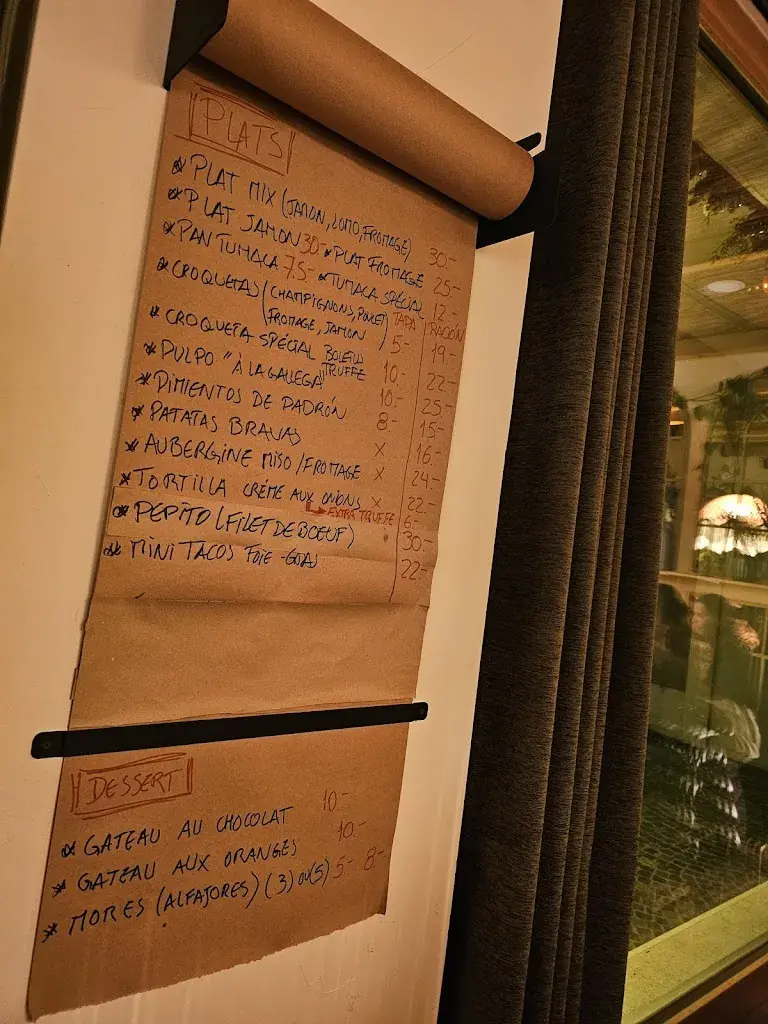 PLATS
* PLAT MIX (JAMON, LOMO, FROMAGE) 30.-
* PLAT JAMON 30.- * PLAT FROMAGE 25.-
* PAN TUMACA 7.5.- * TUMACA SPÉCIAL 12.-
TAPA RACIÓN
* CROQUETAS (CHAMPIGNONS, POULET
FROMAGE, JAMON) 5.- 19.-
* CROQUETA SPÉCIAL BOLETUS
TRUFFE 10.- 22.-
* PULPO "À LA GALLEGA" 10.- 25.-
* PIMIENTOS DE PADRÓN 8.- 15.-
* PATATAS BRAVAS X 16.-
* AUBERGINE MISO / FROMAGE X 24.-
* TORTILLA CRÉME AUX ONIONS X 22.-
EXTRA TRUFFE 6.-
* PEPITO (FILET DE BOEUF) 30.-
* MINI TACOS FOIE-GRAS 22.-
DESSERT
* GATEAU AU CHOCOLAT 10.-
* GATEAU AUX ORANGES 10.-
* MORES (ALFAJORES) (3) OU (5) 5.- 8.-